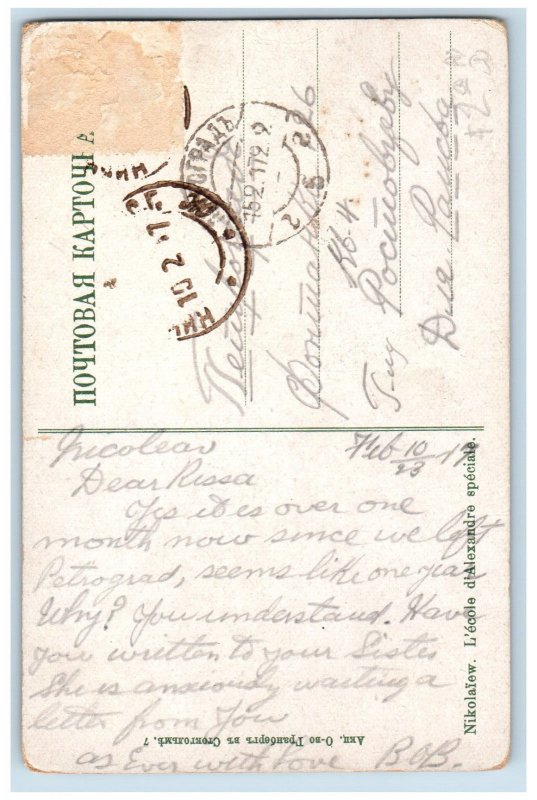 ПОЧТОВАЯ КАРТОЧКА
Петроградъ
Фонтанка 26
кв. 4
Г-ну Ростовцеву
Для
Nicoleav Feb 10/23 17
Dear Rissa
Yes it is over one
month now since we left
Petrograd, seems like one year
Why? You understand. Have
you written to your Sister
She is anxiously waiting a
letter from you
as Ever with Love BOB.
Nikolaïew. L'école d'Alexandre spéciale.
Акц. О-во Гранбергъ въ Стокгольмѣ. 7